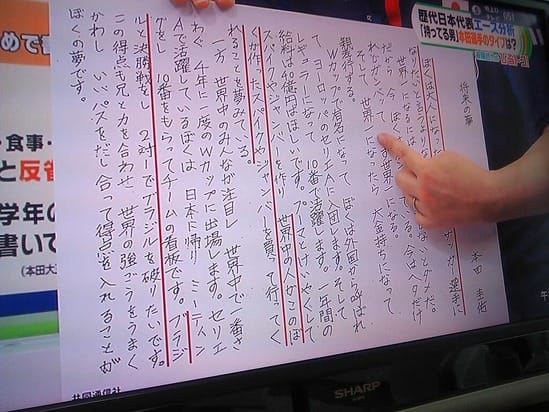 歴代日本代表エース分析
「持ってる男」本田選手のタイプは?
将来の夢
本田 圭佑
ぼくは大人になっ サッカー選手に
なりたいと言うよりな ないとダメだ。
世界一になるには
だから 今 ぼく る。今はヘタだけ
れどガンバって 必ず世界一になる。
世界一になったら 大金持ちになって
親孝行する。
Wカップで有名になって ぼくは外国から呼ばれ
て ヨーロッパのセリエAに入団します。そして
レギュラーになって 10番で活躍します。一年間の
給料は40億円はほしいです。プーマとけいやくして
スパイクやジャンバーを作り 世界中の人がこのぼ
くが作ったスパイクやジャンバーを買って行ってく
れることを夢みている。
一方 世界中のみんなが注目し 世界中で一番さ
わぐ 4年に一度のWカップに出場します。セリエ
Aで活躍しているぼくは 日本に帰り ミーティン
グをし 10番をもらってチームの看板です。ブラジ
ルと決勝戦をし 2対1でブラジルを破りたいです。
この得点も兄と力を合わせ 世界の強ごうをうまく
かわし いいパスをだし合って得点を入れることが
ぼくの夢です。
めで
・食事・
と反省
学年の
書いて
(本田大
共同通信社
SHARP